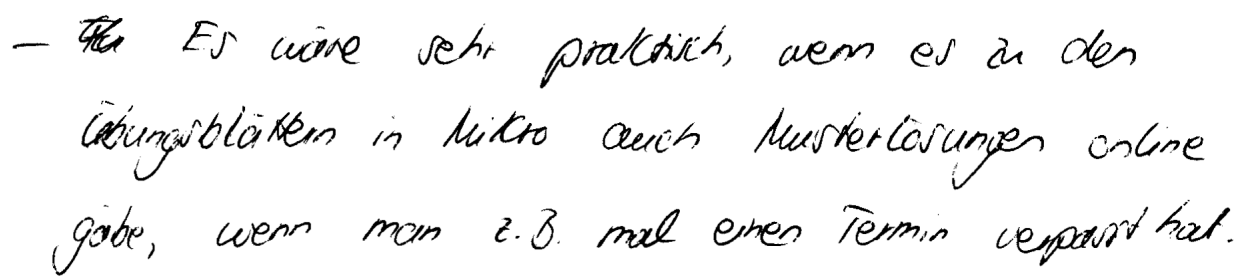 - Es wäre sehr praktisch, wenn es zu den
Übungsblättern in Mikro auch Musterlösungen online
gäbe, wenn man z.B. mal einen Termin verpasst hat.